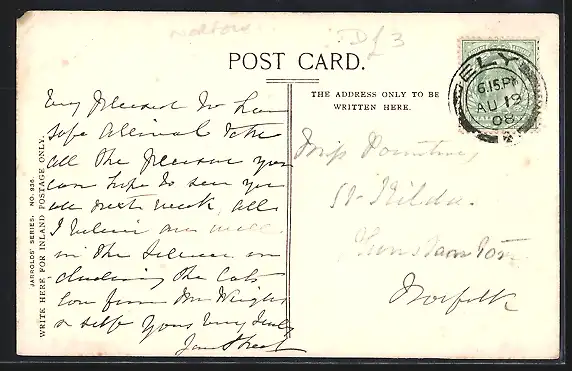 Norfolk
POST CARD.
THE ADDRESS ONLY TO BE
WRITTEN HERE.
JARROLDS' SERIES. NO. 936.
WRITE HERE FOR INLAND POSTAGE ONLY.
ELY
6.15.PM
AU 19
08
Very pleased to hear
safe arrival take
all the pleasure you
can hope to see you
all next week, all
I believe are well
in the
including the Cats
love from Mr Wright
& self yours very truly
Miss
St. Kilda
Norfolk